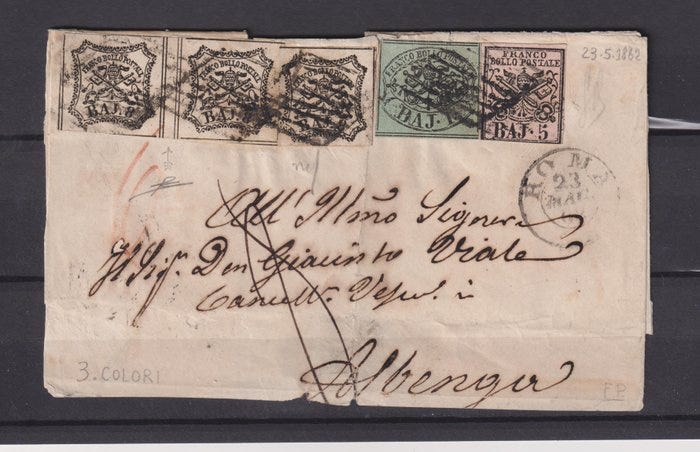 FRANCO BOLLO POSTALE BAJ. 8
FRANCO BOLLO POSTALE BAJ. 8
FRANCO BOLLO POSTALE
FRANCO BOLLO POSTALE BAJ. 1
FRANCO
BOLLO POSTALE
BAJ. 5
23-5.1862
ROMA
23
MAG
All' Illmo Signore
Il Sigr. Don Giacinto Viale
Cancell. Vesc. i
Albenga
3. COLORI
FP